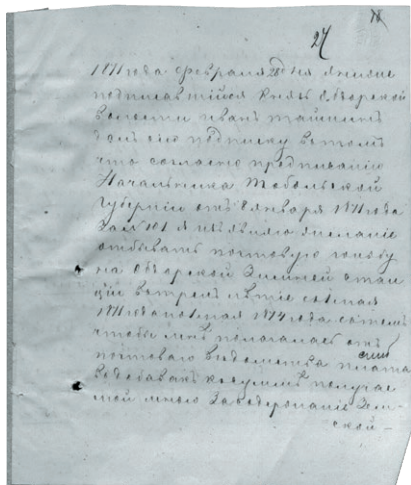 24
1871 года февраля 28 дня я ниже
подписавшійся князь Обдорской
волости Иванъ Тайшинъ
далъ сію подписку въ томъ
что согласно предписанію
Начальника Тобольской
Губерніи отъ 8 января 1871 года
за № 101 я изъявляю желаніе
отбывать почтовую гоньбу
на Обдорской Зимней стан
ціи въ трехъ лѣтіе съ 1 мая
1871 года по 1 мая 1874 года съ тѣмъ
чтобы мнѣ полагалась отъ
почтоваго ведомства плата
получае
мой мною за содержаніе Зем-
ской -